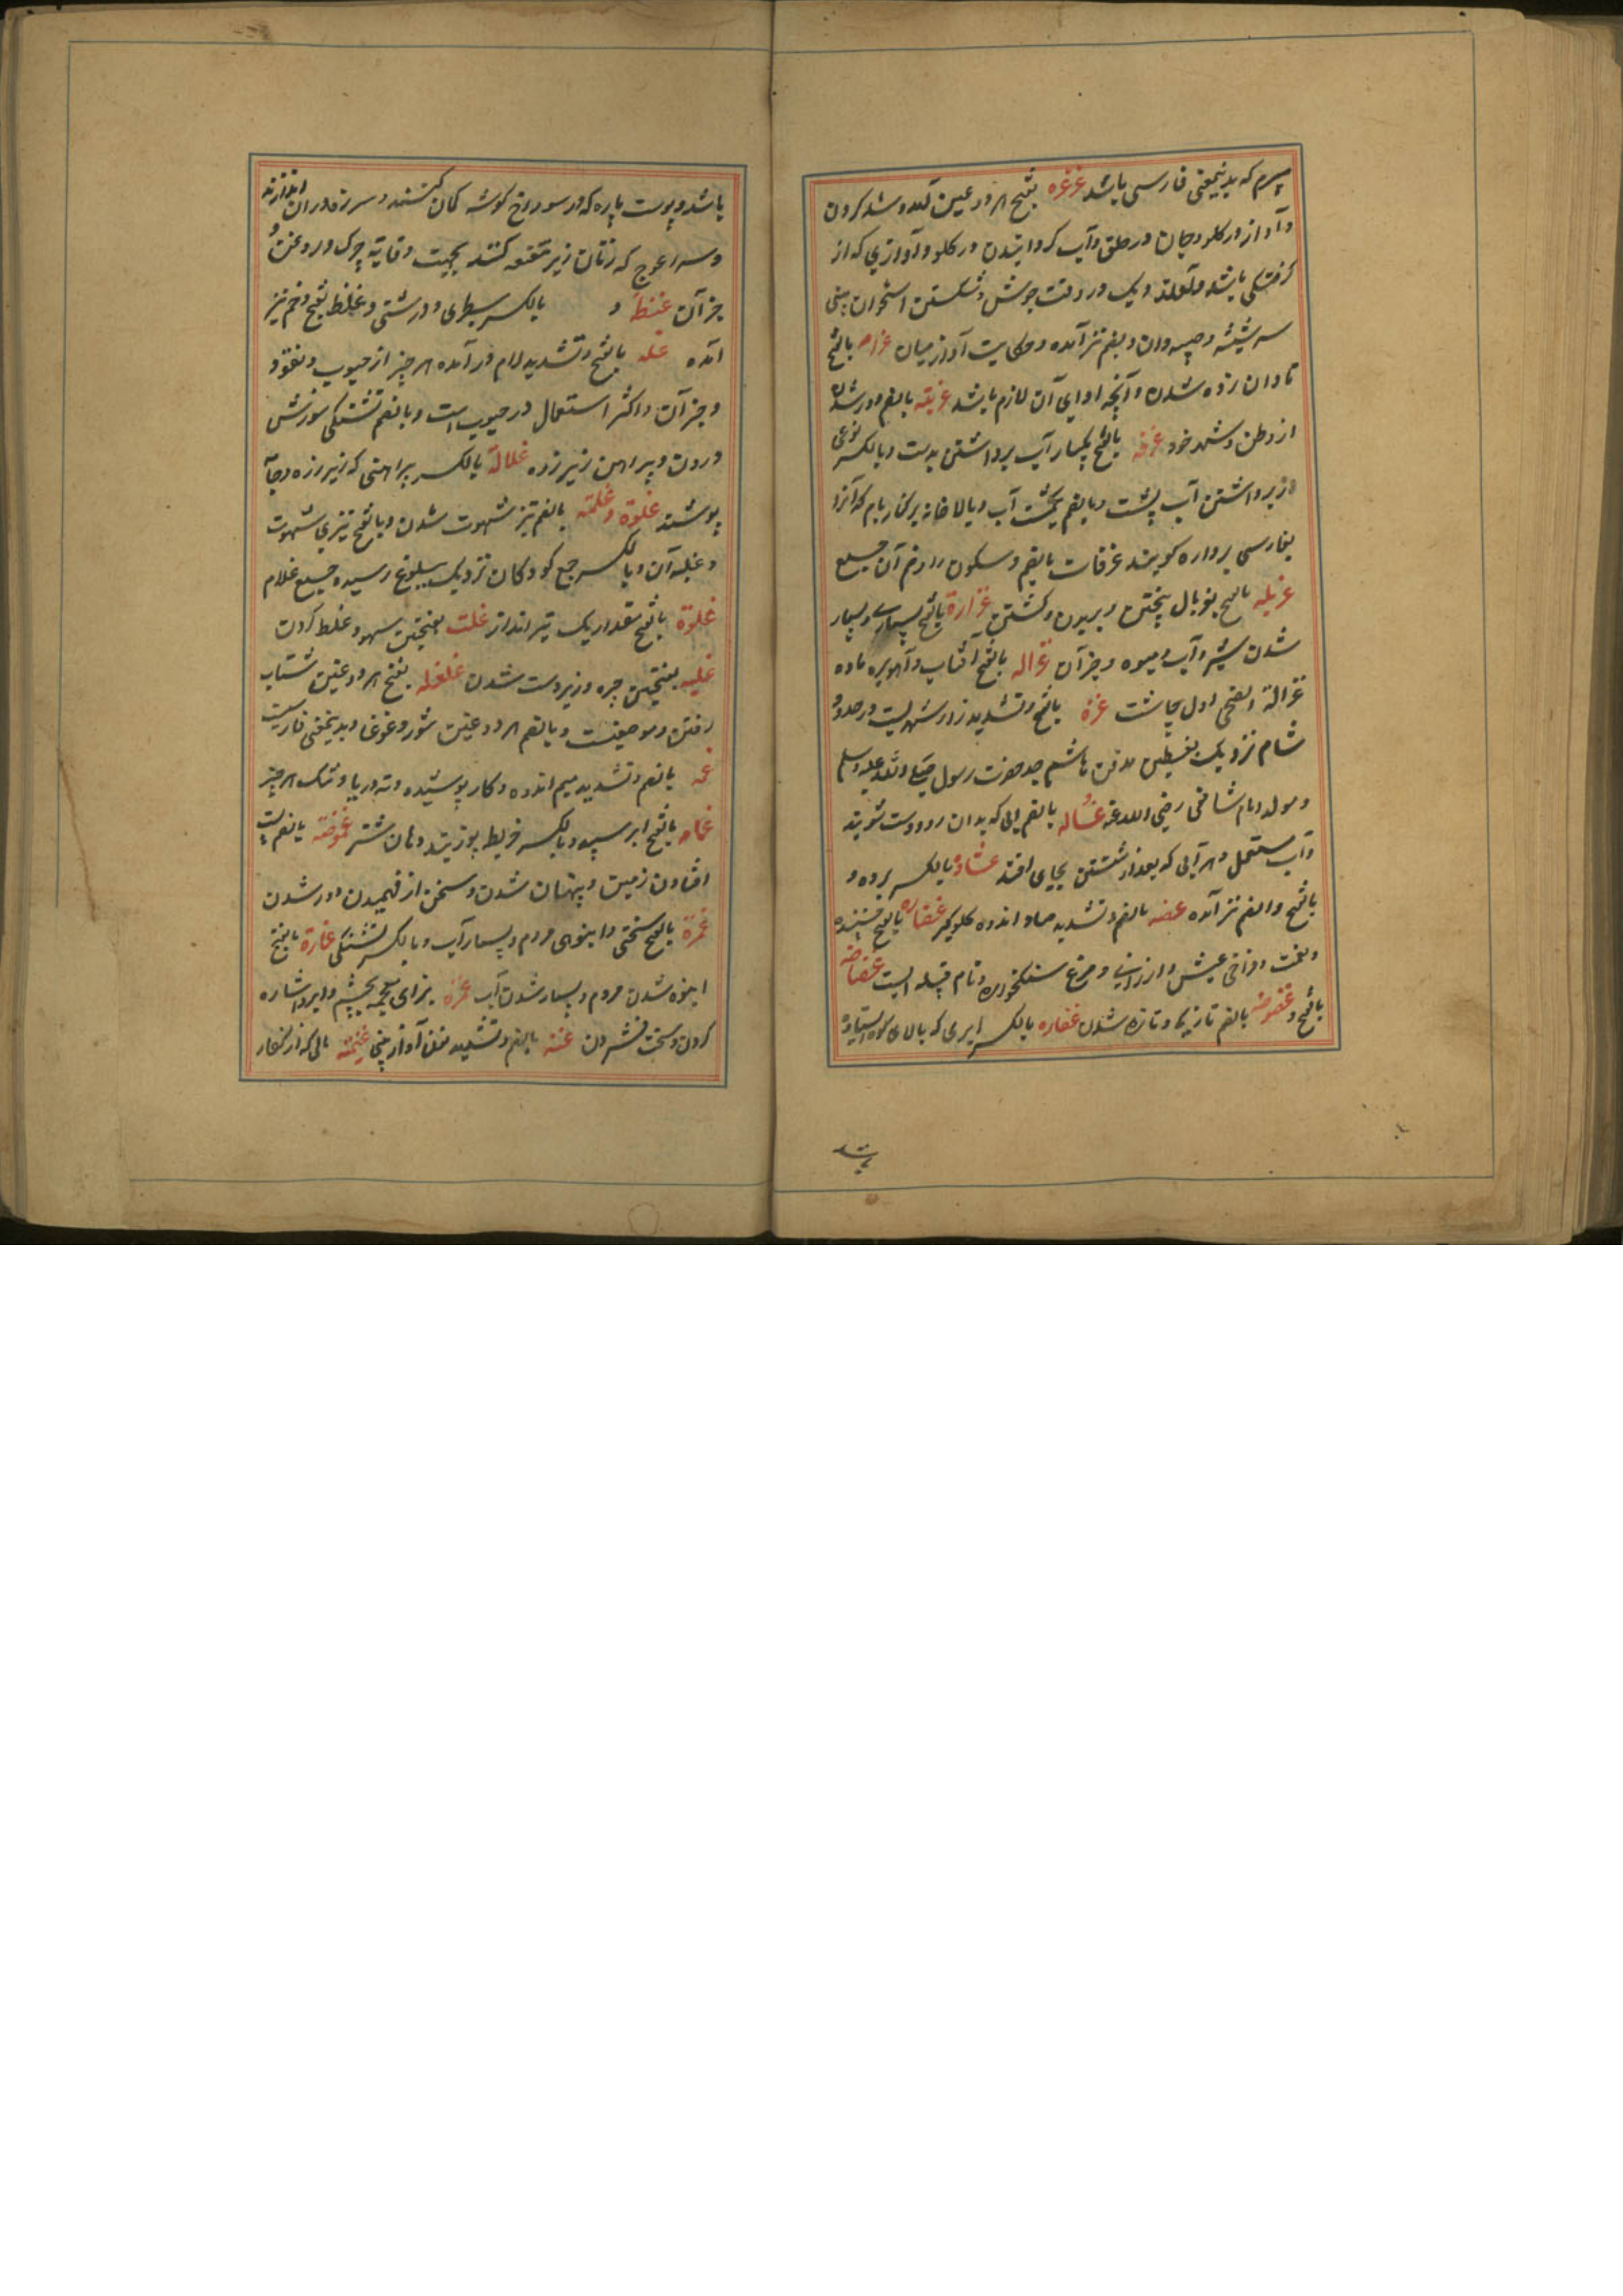 که بدینمعنی فارسی باشد غرغره بفتح هر دو عین آمد و شد کردن
و آواز در کلو و جان در حلق و آب کردانیدن در کلو و آوازی که از
کرفتکی باشد و دیک در وقت جوش و شکستن استخوان بینی
سر شیشه و بضم نیز آمده و حکایت آواز غرامه بالفتح
تاوان زده شدن و آنچه ادای آن لازم باشد غربته بالضم دور شدن
از وطن و شهر خود غرفه بالفتح یکبار آب برداشتن بدست و بالکسر نوعی
از برداشتن آب و بالضم یکمشت آب و بالاخانه بر کنار بام که آنرا
بفارسی برواره کویند غرفات بالضم و سکون را و ضم آن جمع
غربله بالفتح بغربال بیختن و بریدن و کشتن غزارة بالفتح بسیاری و بسیار
شدن شیر و آب و میوه و جز آن غزاله بالفتح آفتاب و آهوبره ماده
غزالة الضحی اول چاشت غزة بالفتح و تشدید زا شهریست در حدود
شام نزدیک بفلسطین مدفن هاشم جد حضرت رسول صلی الله علیه وسلم
و مولد امام شافعی رضی الله عنه غساله بالضم آبی که بدان رو و دست شویند
و آب مستعمل و هر آبی که بعد از شستن بجای افتد غشاوة بالکسر پرده و
بالفتح و الضم نیز آمده غصه بالضم و تشدید صاد اندوه کلوکیر غضاره بالفتح
و نعمت و فراخی عیش و ارزانی و مرغ سنکخواره و نام قبیله ایست غضاضه
بالفتح و غضوضه بالضم تازکی و تازه شدن غفاره بالکسر ابری که بالای ابر ایستاده
باشد و پوست پاره که در سوراخ کوشه کمان کنند و سر زه در آن اندازند
و سر اعوج که زنان زیر مقنعه کنند بجهت وقایه چرک و روغن و
جز آن غلظ و بالکسر سطبری و درشتی و غلظ بفتح و ضم نیز
آمده غله بالفتح و تشدید لام درآمده هر چیز از حبوب و نقود
و جز آن و اکثر استعمال در حبوب است و بالضم تشنکی و سوزش
درون و پیراهن زیر زره غلالة بالکسر پیراهنی که زیر زره و جامه
پوشند غلوة و غلمته بالضم تیز شهوت شدن و بالفتح تیزی شهوت
و غلبه آن و بالکسر جمع کودکان نزدیک ببلوغ رسیده جمع غلام
غلوة بالفتح مقدار یک تیر انداز غلت بفتحتین سهو و غلط کردن
غلبه بفتحتین چیره و زبردست شدن غلغله بفتح هر دو غین شتاب
رفتن و موضعیست و بالضم هر دو غین شور و غوغا و بدینمعنی فارسیست
غمه بالضم و تشدید میم اندوه و کار پوشیده و ته دریا و تنک هر چیز
غمامه بالفتح ابر سپید و بالکسر خریطه پوز بند دهان شتر غموضته بالضم پست
افتادن زمین و پنهان شدن و سخن از فهمیدن دور شدن
غمرة بالفتح سختی و انبوهی مردم و بسیار آب و بالکسر تشنکی غمارة بالفتح
انبوه شدن مردم و بسیار شدن آب غمزه بزای معجمه بچشم و ابرو اشاره
کردن و سخت فشردن غنه بالضم و تشدید نون آواز بینی غنیمته مالی که از کفار